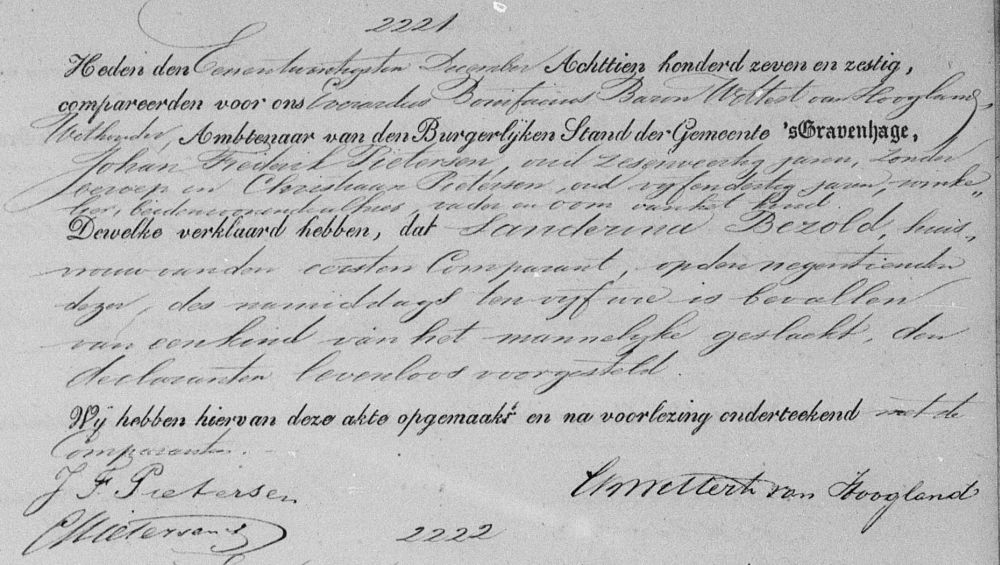 2221
Heden den Eenentwintigsten December Achttien honderd zeven en zestig,
compareerden voor ons Everardus Bonifacius Baron Wittert van Hoogland,
Wethouder, Ambtenaar van den Burgerlijken Stand der Gemeente 'sGravenhage,
Johan Frederik Pietersen, oud zesenveertig jaren, zonder
beroep en Christiaan Pietersen, oud vijfendertig jaren, winke„
lier, beiden wonende alhier, vader en oom van het kind
Dewelke verklaard hebben, dat Sanderina Bezold, huis„
vrouw van den eersten Comparant, op den negentienden
dezer, des namiddags ten vijf ure is bevallen
van een kind van het mannelijke geslacht, den
declaranten levenloos voorgesteld.
Wij hebben hiervan deze akte opgemaakt en na voorlezing onderteekend met de
Comparanten.
J F Pietersen
Wittert van Hoogland
Pietersen
2222